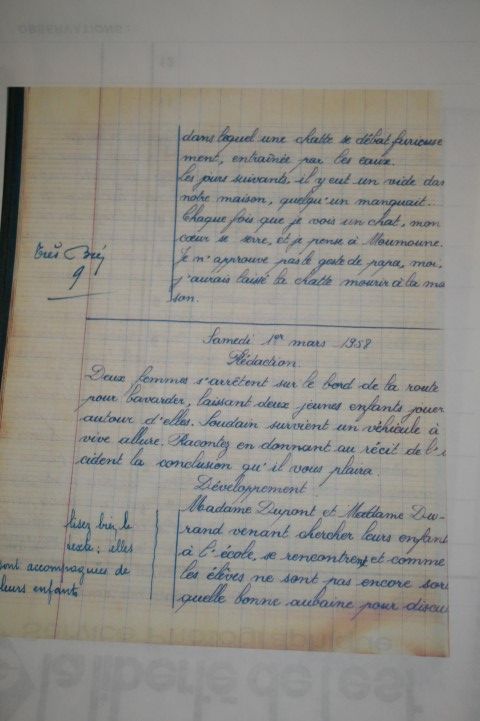 dans lequel une chatte se débat furieuse
ment, entraînée par les eaux.
Les jours suivants, il y eut un vide dans
notre maison, quelqu'un manquait.
Chaque fois que je vois un chat, mon
cœur se serre, et je pense à Moumoune.
Je n'approuve pas le geste de papa, moi,
j'aurais laissé la chatte mourir à la mai
son.
Très
9
Samedi 1er mars 1958
Rédaction.
Deux femmes s'arrêtent sur le bord de la route
pour bavarder, laissant deux jeunes enfants jouer
autour d'elles. Soudain survient un véhicule à
vive allure. Racontez en donnant au récit de l'i
cident la conclusion qu'il vous plaira.
Développement
Madame Dupont et Madame Du-
rand venant chercher leurs enfant
à l'école, se rencontrent et comme
les élèves ne sont pas encore sor
quelle bonne aubaine pour discu
lisez bien le
texte ; elles
sont accompagnées de
leurs enfants
OBSERVATIONS :
12
la liberté de l'est